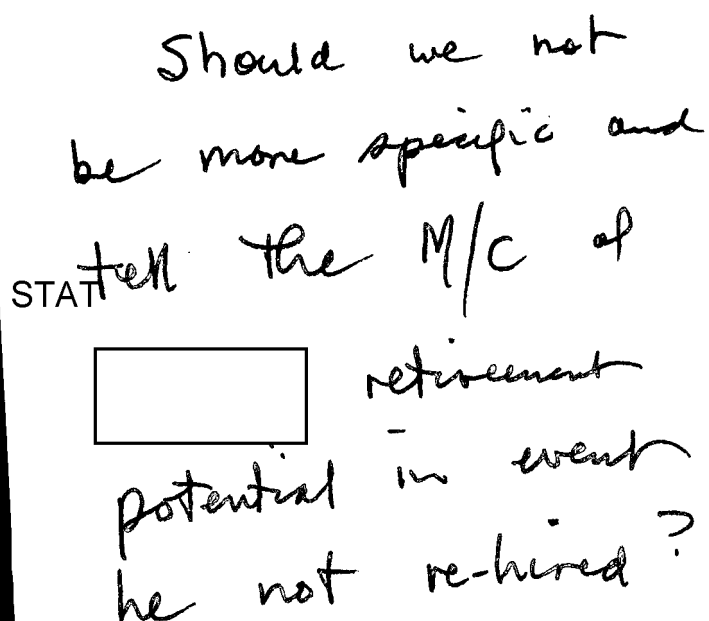 Should we not
be more specific and
tell the M/C of
STAT
retirement
potential in event
he not re-hired?